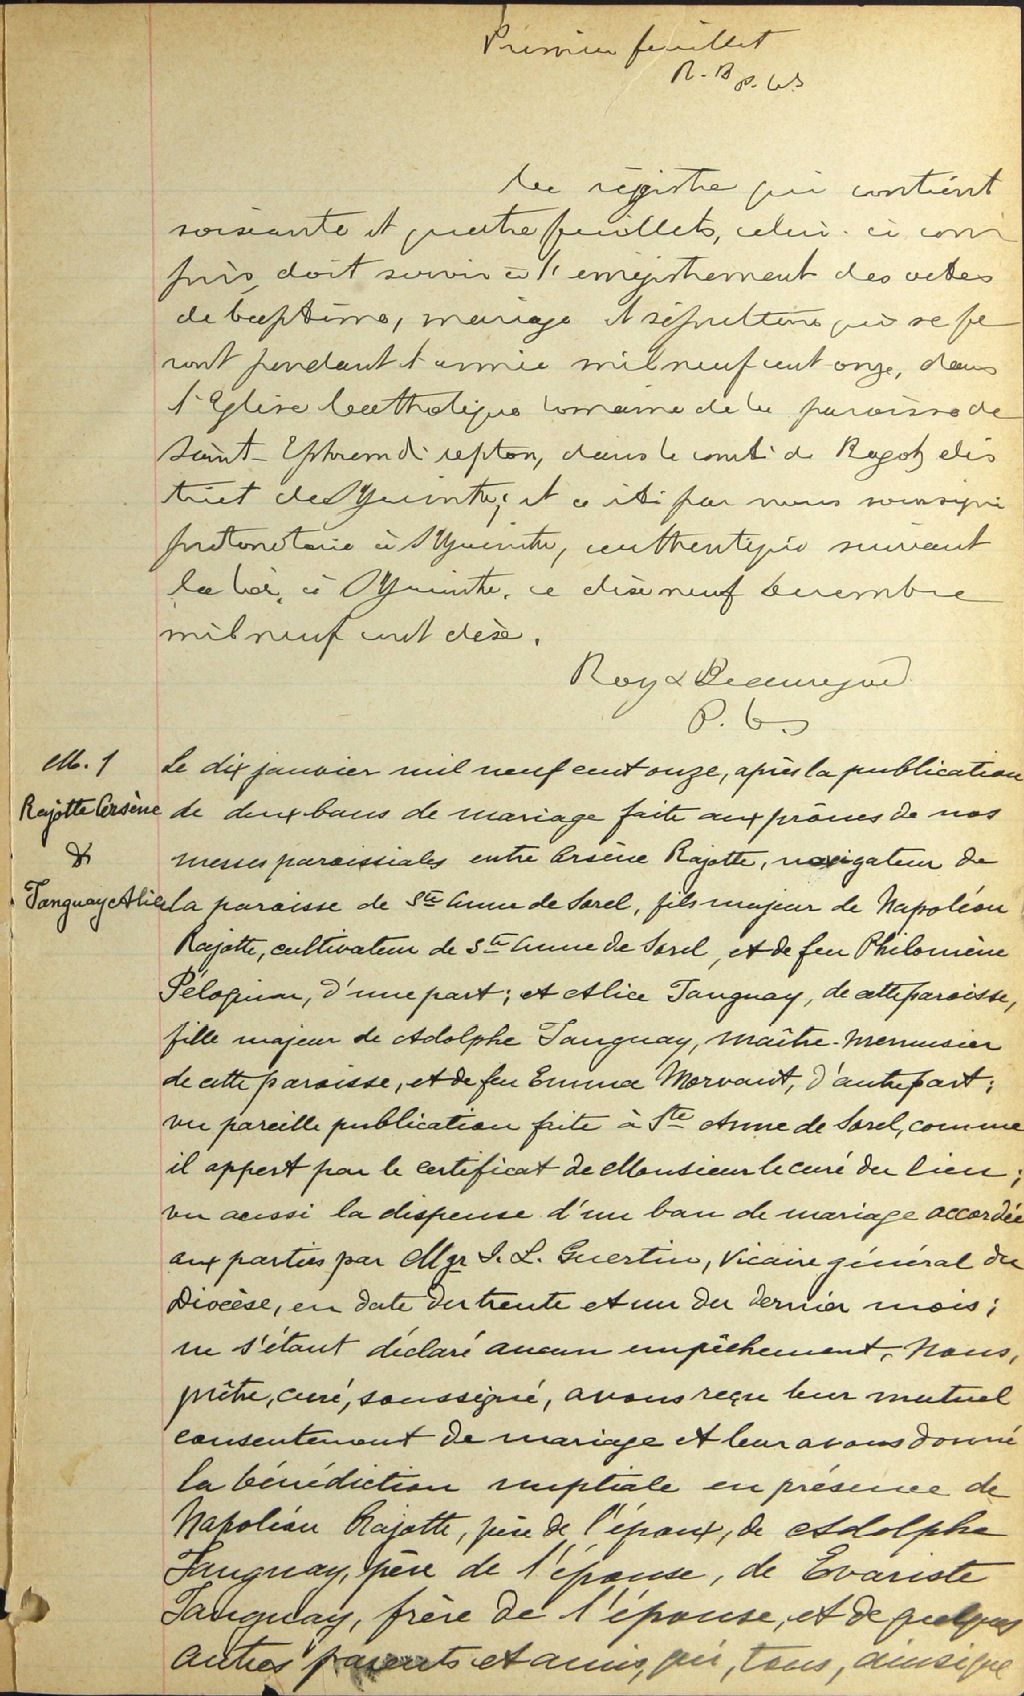 Premier feuillet
R. B P. C. S
Ce registre qui contient
soixante et quatre feuillets, celui-ci com
pris, doit servir à l'enregistrement des actes
de baptême, mariage et sépulture qui se fe
ront pendant l'année mil neuf cent onze, dans
l'Eglise Catholique romaine de la paroisse de
Saint-Ephrem d'Upton, dans le comté de Bagot, dis
trict de St Hyacinthe; et a été par nous soussigné
protonotaire à St Hyacinthe, authentiqué suivant
la loi, à St Hyacinthe, ce dix neuf Decembre
mil neuf cent dix.
Roy & Beauregard
P. C. S
M. 1
Rajotte Arsène
&
Tanguay Alice
Le dix janvier mil neuf cent onze, après la publication
de deux bans de mariage faite aux prônes de nos
messes paroissiales entre Arsène Rajotte, navigateur de
la paroisse de Ste Anne de Sorel, fils majeur de Napoléon
Rajotte, cultivateur de Ste Anne de Sorel, et de feu Philomène
Péloquin, d'une part; et Alice Tanguay, de cette paroisse,
fille majeur de Adolphe Tanguay, maître-menuisier
de cette paroisse, et de feu Emma Morvant, d'autre part;
vu pareille publication faite à Ste Anne de Sorel, comme
il appert par le certificat de Monsieur le curé du lieu;
vu aussi la dispense d'un ban de mariage accordée
aux parties par Mgr J. L. Guertin, Vicaire général du
Diocèse, en date du trente et un du dernier mois;
ne s'étant déclaré aucun empêchement, Nous,
prêtre, curé, soussigné, avons reçu leur mutuel
consentement de mariage et leur avons donné
la bénédiction nuptiale en présence de
Napoléon Rajotte, père de l'époux, de Adolphe
Tanguay, père de l'épouse, de Evariste
Tanguay, frère de l'épouse, et de quelques
autres parents et amis, qui, tous, ainsi que